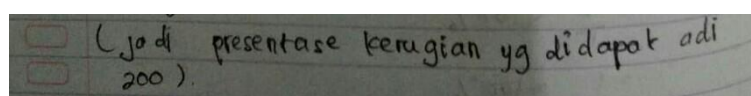 (jadi presentase kerugian yg didapat adi
200).